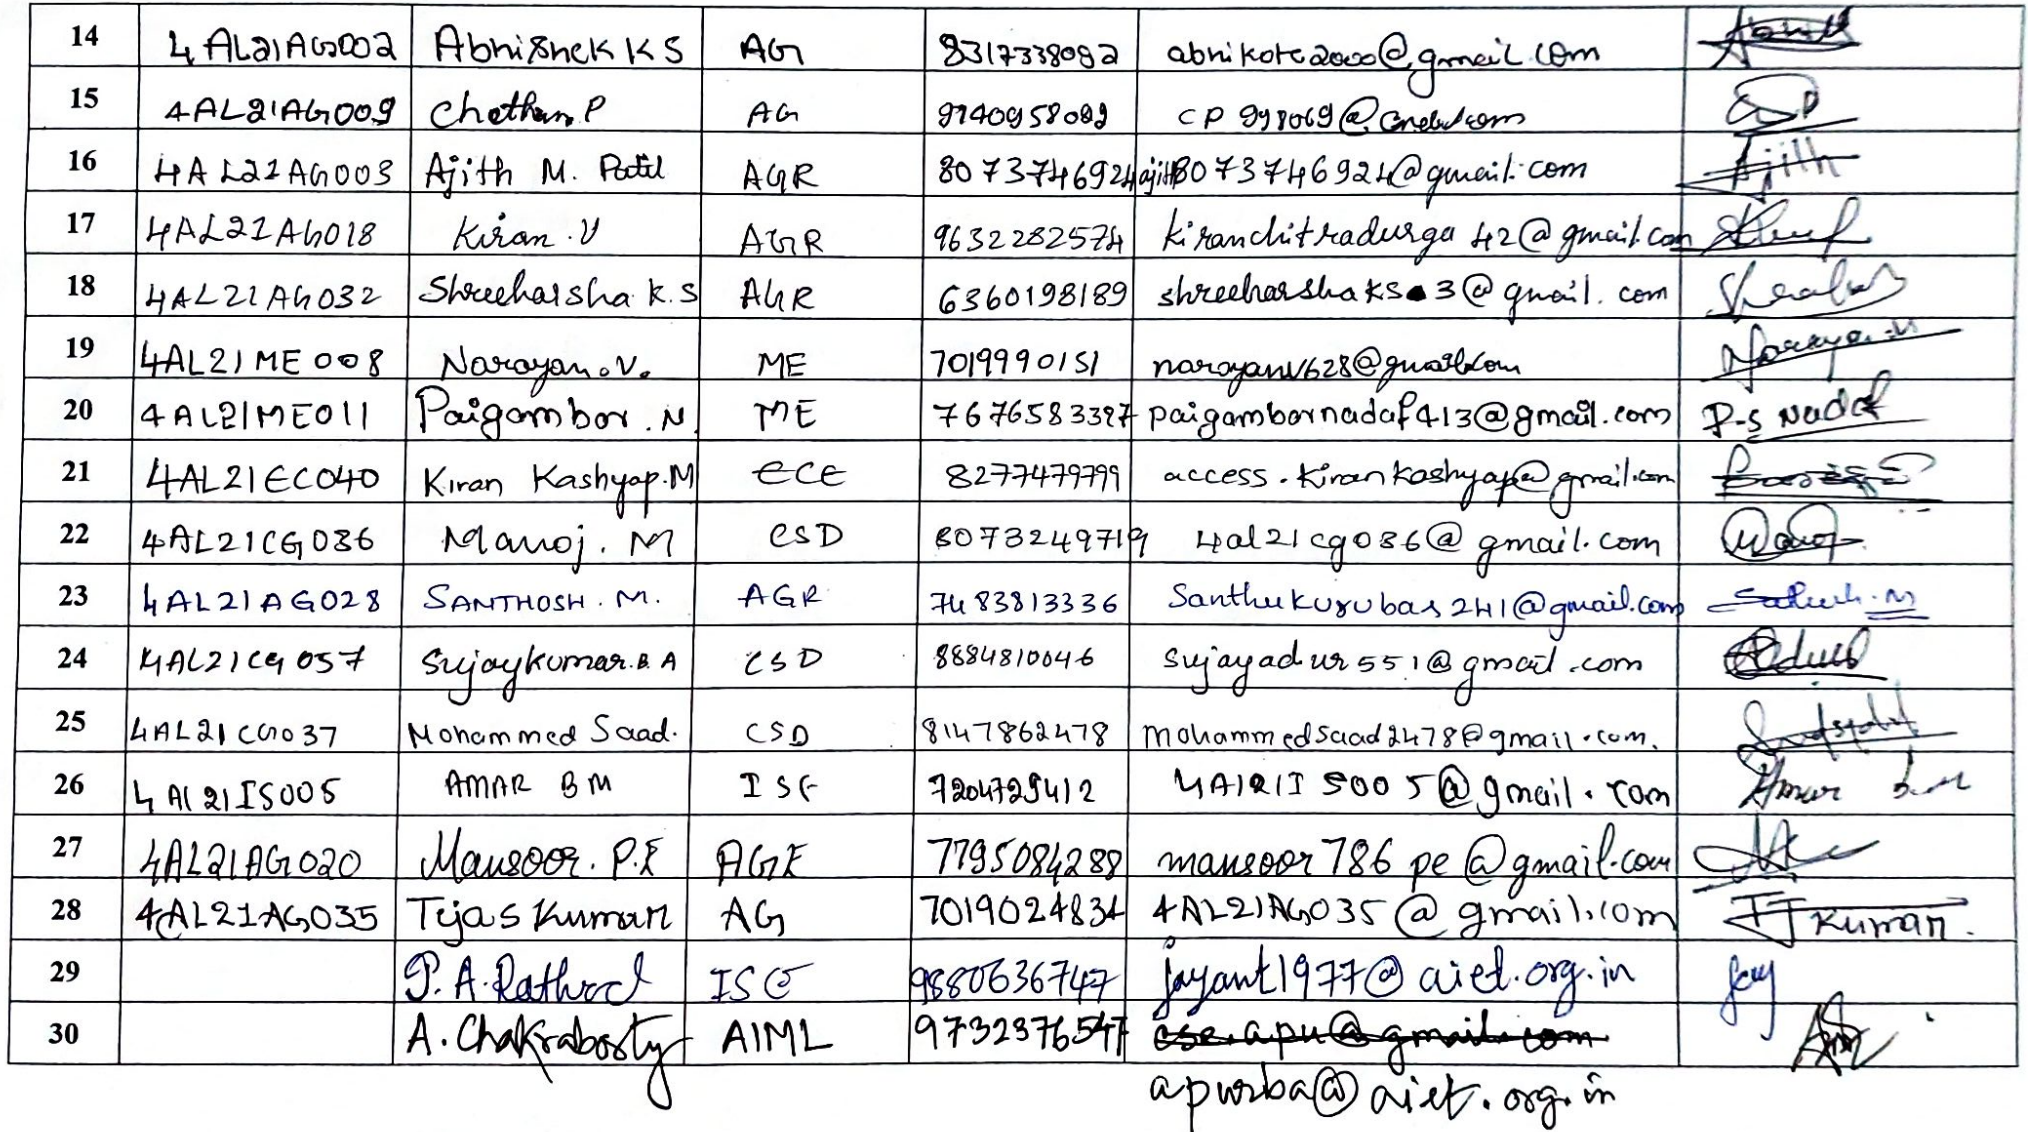 14 4AL21AG002 Abhishek K S AG 8317338092 abhikote2000@gmail.com
15 4AL21AG009 Chethan P AG 9740958099 CP998069@gmail.com
16 4AL21AG003 Ajith M. Patil AGR 8073746924 ajith8073746924@gmail.com Ajith
17 4AL21AG018 Kiran.V AGR 9632282574 kiranchitradurga42@gmail.com
18 4AL21AG032 Shreeharsha K.S AGR 6360198189 shreeharshaks3@gmail.com
19 4AL21ME008 Narayan.V. ME 7019990151 narayanv628@gmail.com Narayan.V
20 4AL21ME011 Paigambar.N ME 7676583397 paigambarnadaf413@gmail.com P-S Nadaf
21 4AL21EC040 Kiran Kashyap.M ECE 8277479799 access.kirankashyap@gmail.com
22 4AL21CG036 Manoj.M CSD 8073249719 4al21cg036@gmail.com
23 4AL21AG028 SANTHOSH.M. AGR 7483813336 Santhukurubas241@gmail.com
24 4AL21CG057 Sujaykumar.B A CSD 8884810046 sujayadur551@gmail.com
25 4AL21CG037 Mohammed Saad. CSD 8147862478 mohammedsaad2478@gmail.com.
26 4Al21IS005 AMAR B M ISE 7204729412 4Al21IS005@gmail.com Amar
27 4AL21AG020 Mansoor.P.E AGE 7795084288 mansoor786pe@gmail.com
28 4AL21AG035 Tejas Kumar AG 7019024834 4AL21AG035@gmail.com TJ Kumar.
29 J.A.Rathod ISE 9880636747 jayant1977@aiet.org.in Jay
30 A.Chakraborty AIML 9732376547 cse.apu@gmail.com
apurba@aiet.org.in